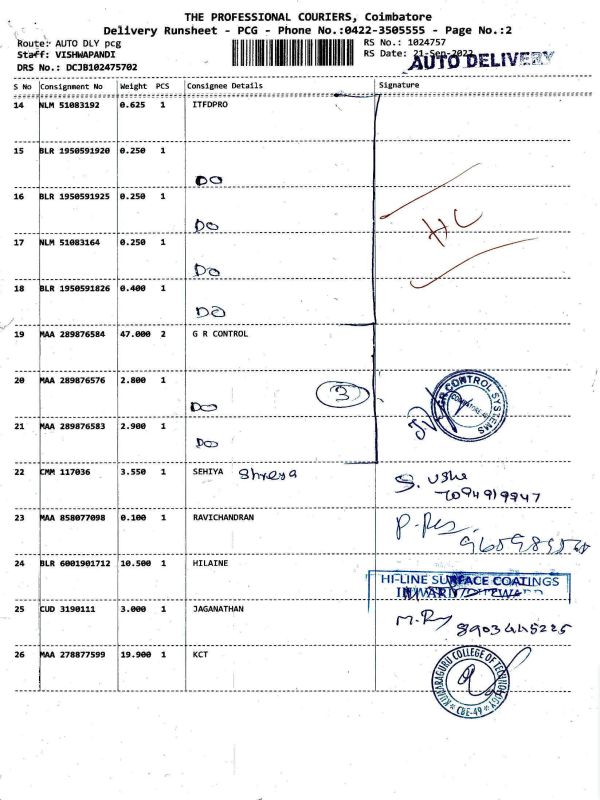 THE PROFESSIONAL COURIERS, Coimbatore
Delivery Runsheet - PCG - Phone No.:0422-3505555 - Page No.:2
Route: AUTO DLY pcg RS No.: 1024757
Staff: VISHWAPANDI RS Date: 21-Sep-2022
AUTO DELIVERY
DRS No.: DCJB102475702
S No Consignment No Weight PCS Consignee Details Signature
14 NLM 51083192 0.625 1 ITFDPRO
15 BLR 1950591920 0.250 1
DO
16 BLR 1950591925 0.250 1
DO
HC
17 NLM 51083164 0.250 1
DO
18 BLR 1950591826 0.400 1
DO
19 MAA 289876584 47.000 2 G R CONTROL
20 MAA 289876576 2.800 1
DO
3
GR CONTROL SYSTEMS
21 MAA 289876583 2.900 1
DO
22 CMM 117036 3.550 1 SEHIYA Shreya
S. Usha
7094919947
23 MAA 858077098 0.100 1 RAVICHANDRAN
24 BLR 6001901712 10.500 1 HILAINE
HI-LINE SURFACE COATINGS
25 CUD 3190111 3.000 1 JAGANATHAN
8903445225
26 MAA 278877599 19.900 1 KCT
KUMARAGURU COLLEGE OF TECHNOLOGY
CBE-49